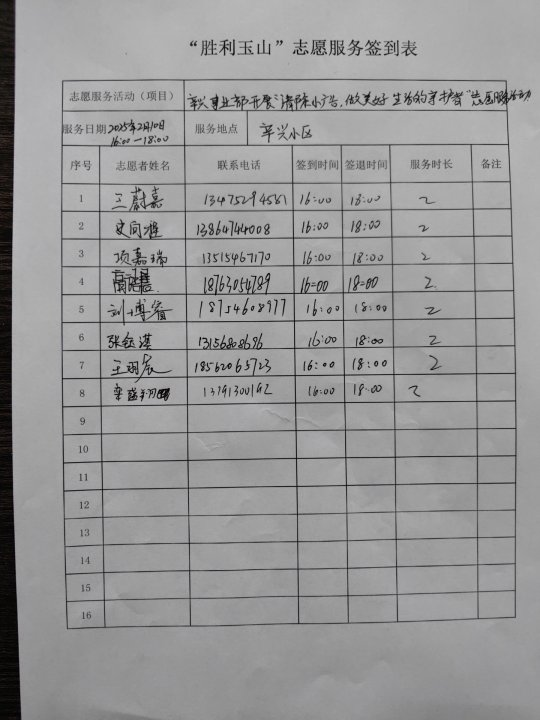 “胜利玉山”志愿服务签到表
志愿服务活动（项目） 辛兴事业部开展“清除小广告，做美好生活的守护者”志愿服务活动
服务日期 2025年2月10日 16:00—18:00 服务地点 辛兴小区
序号 志愿者姓名 联系电话 签到时间 签退时间 服务时长 备注
1 王蔚嘉 13475294581 16:00 18:00 2
2 13860744008 16:00 18:00 2
3 项嘉瑞 13515467170 16:00 18:00 2
4 18763054789 16:00 18:00 2
5 刘博睿 18754608977 16:00 18:00 2
6 张钰淇 13156808696 16:00 18:00 2
7 王翊辰 18562065723 16:00 18:00 2
8 13791300192 16:00 18:00 2
9
10
11
12
13
14
15
16